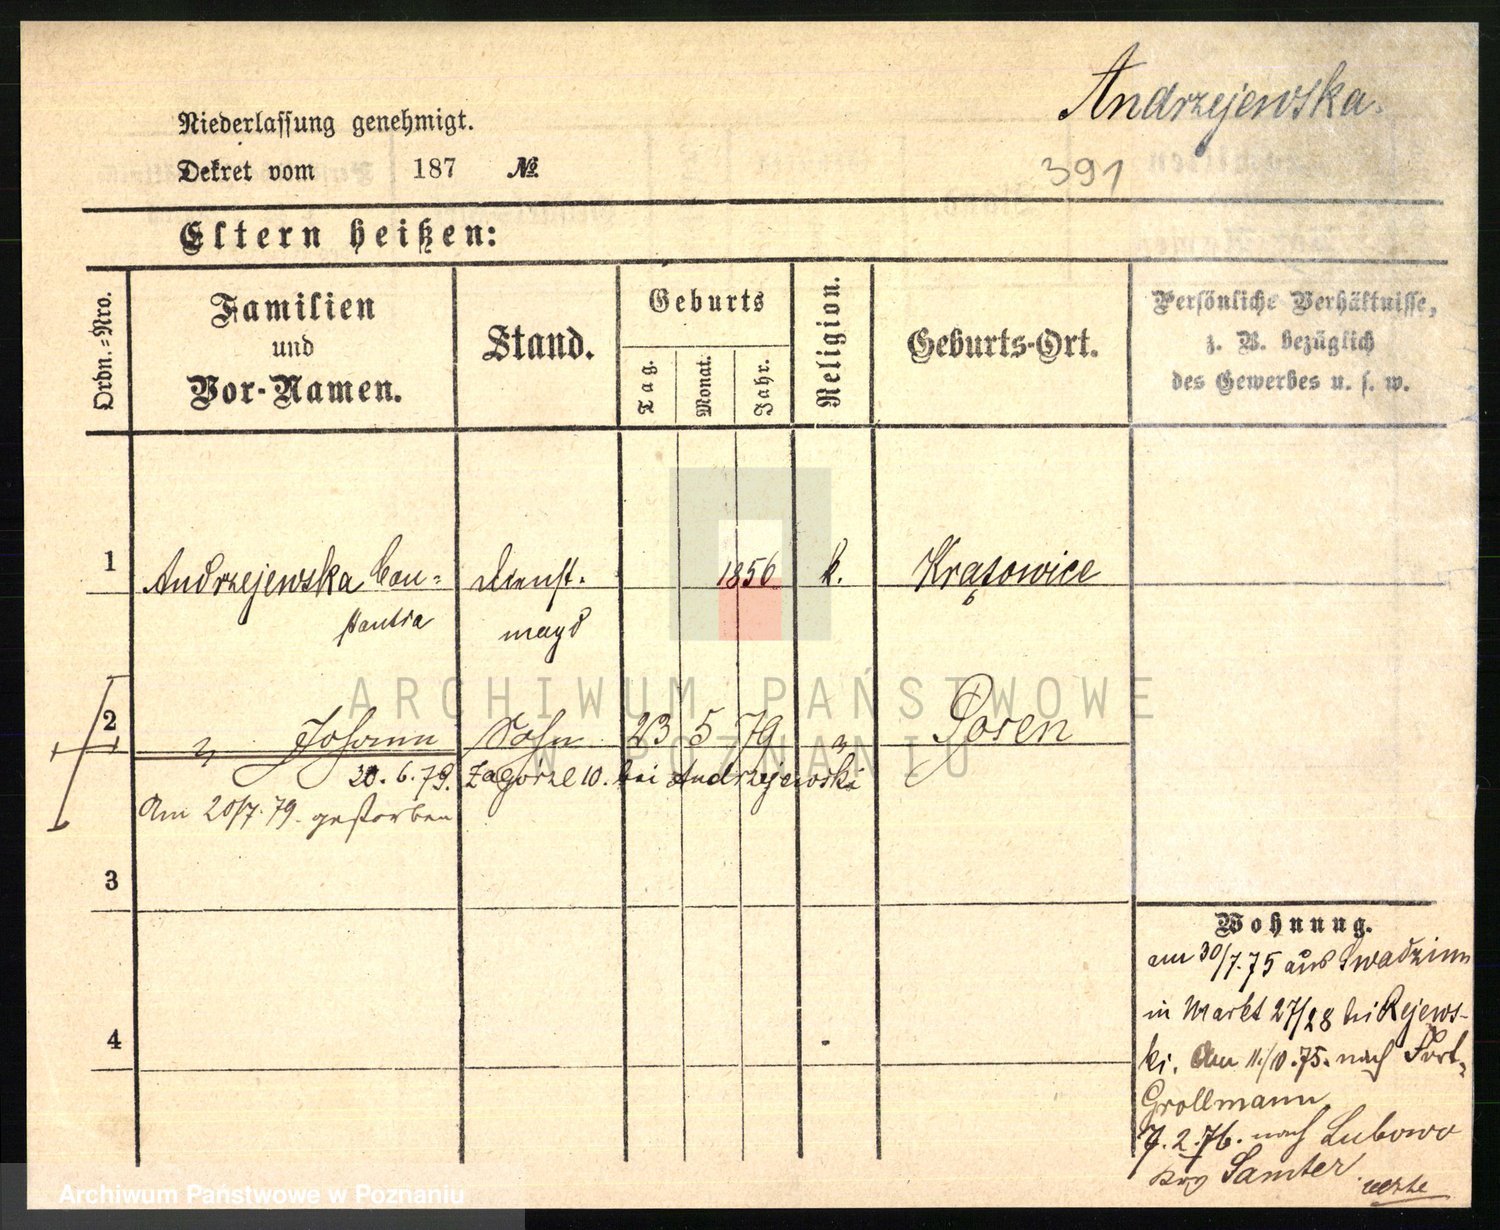 Andrzejewska.
Niederlassung genehmigt.
Dekret vom 187 №
391
Eltern heißen:
Ordn.=Nro.
Familien
und
Vor-Namen.
Stand.
Geburts
Tag.
Monat.
Jahr.
Religion.
Geburts-Ort.
Persönliche Verhältnisse,
z. B. bezüglich
des Gewerbes u. s. w.
1 Andrzejewska Con= Dienst= 1856 k.
stantia magd
2 " Johann Sohn 23 5 79 " Posen
20.6.79. Zagórze 10. bei Andrzejewski
Am 20/7.79. gestorben
3
4
Wohnung.
am 30/7.75 aus Swadzim
in Markt 27/28 bei Rejews-
ki. Am 11./10.75. nach Fort-
Grollmann
7.2.76. nach Lubowo
Samter
ARCHIWUM PAŃSTWOWE
W POZNANIU
Archiwum Państwowe w Poznaniu